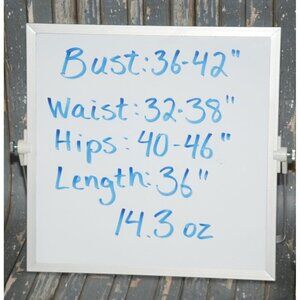 Bust: 36-42"
Waist: 32-38"
Hips: 40-46"
Length: 36"
14.3 oz